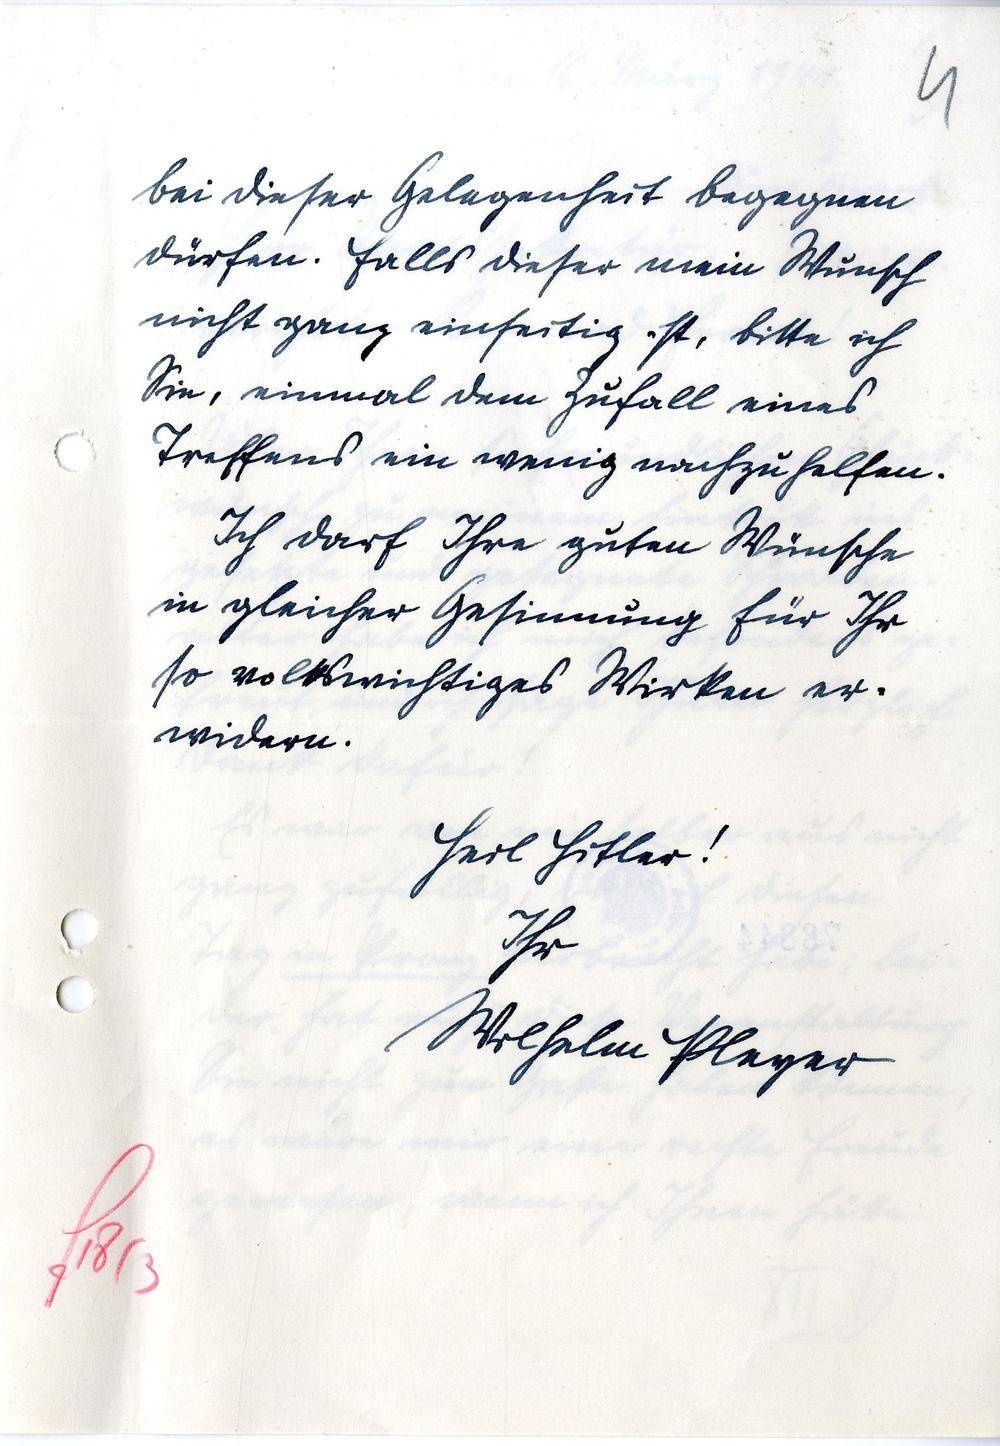 4
bei dieser Gelegenheit begegnen
dürfen. Falls dieser mein Wunsch
nicht ganz einseitig ist, bitte ich
Sie, einmal dem Zufall eines
Treffens ein wenig nachzuhelfen.
Ich darf Ihre guten Wünsche
in gleicher Gesinnung für Ihr
so volkswichtiges Wirken er-
widern.
Heil Hitler!
Ihr
Wilhelm Pleyer
18/3